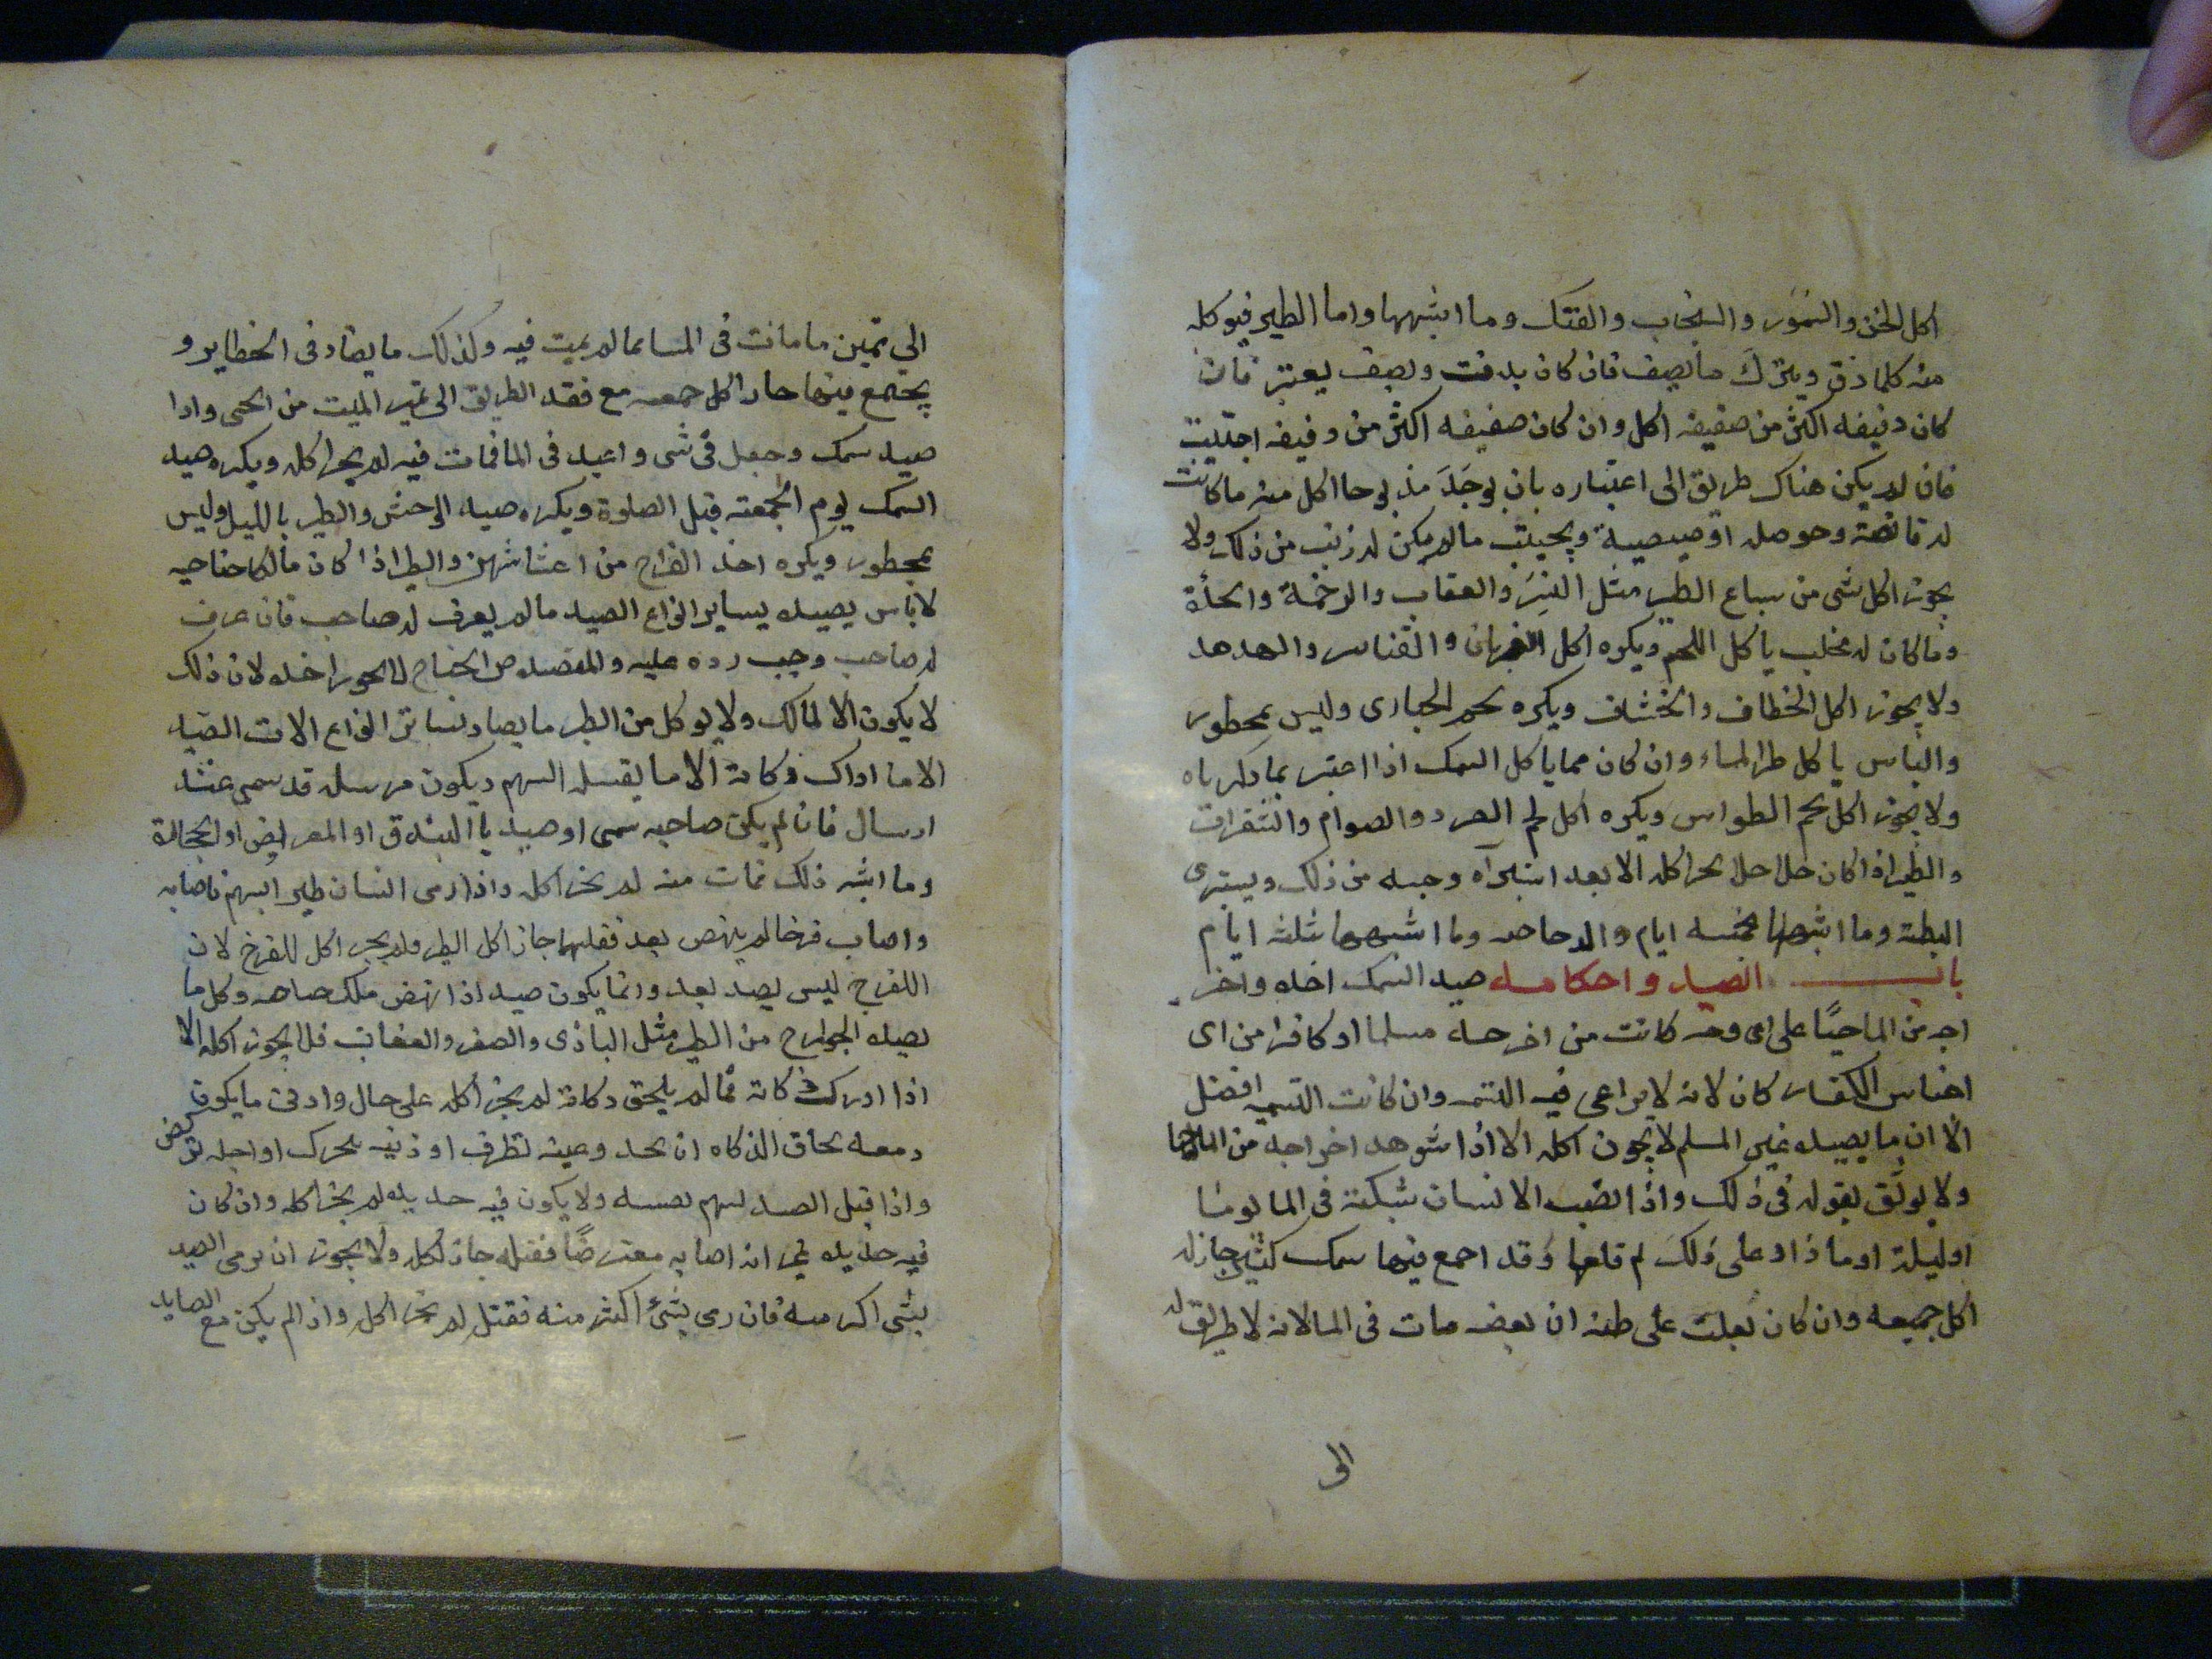 اكل الخز والسمور والسنجاب والفنك وما اشبهها واما الطير فيوكل
منه كلما دف ويترك ما يصف فان كان يدف ويصف يعتبر فان
كان دفيفه اكثر من صفيفه اكل وان كان صفيفه اكثر من دفيفه اجتنب
فان لم يكن هناك طريق الى اعتباره بان يوجد مذبوحا اكل منه ما كانت
له قانصة وحوصله او صيصية ويجتنب ما لم يكن له زنب من ذلك ولا
يجوز اكل شى من سباع الطير مثل النسر والعقاب والرخمة والحدأة
وما كان له مخلب ياكل اللحم ويكره اكل الغربان والقنابر والهدهد
ولا يجوز اكل الخطاف والخشاف ويكره لحم الحبارى وليس بمحظور
والباس ياكل طير الماء وان كان مما ياكل السمك اذا اعتبر بما ذكرناه
ولا يجوز اكل لحم الطواس ويكره اكل لحم الصرد والصوام والشقراق
والطير اذا كان جلالا لم يجز اكله الا بعد استبراه وحبسه من ذلك ويستبرى
البطة وما اشبهها بخمسه ايام والدجاجه وما اشبهها بثلثه ايام
باب الصيد واحكامه صيد السمك اخذه واخر
اجه من الما حيًا على اى وجه كانت من اخرجه مسلما او كافرا من اى
اجناس الكفار كان لانه لا يراعى فيه التسميه وان كانت التسميه افضل
الا ان ما يصيده غير المسلم لا يجوز اكله الا اذا شوهد اخراجه من الما حيا
ولا يوثق بقوله فى ذلك واذا نصب الانسان شبكة فى الما يوما
او ليلة او ما زاد على ذلك ثم قلعها وقد اجمع فيها سمك كثير جاز له
اكل جميعه وان كان يغلب على ظنه ان بعضه مات فى الما لانه لا طريق له
الى
الى تميز ما مات فى الما مما لم يمت فيه وكذلك ما يصاد فى الحظاير و
يجتمع فيها جاز اكل جميعه مع فقد الطريق الى تميز الميت من الحى واذا
صيد سمك وجعل فى شى واعيد فى الما فمات فيه لم يجز اكله ويكره صيد
السمك يوم الجمعة قبل الصلوة ويكره صيد الوحش والطير بالليل وليس
بمحظور ويكره اخذ الفراخ من اعشاشهن والطير اذا كان مالكا جناحيه
لا باس بصيده بساير انواع الصيد ما لم يعرف له صاحب فان عرف
له صاحب وجب رده عليه والمقصده من الجناح لا يجوز اخذه لان ذلك
لا يكون الا لمالك ولا يوكل من الطير ما يصاد بساير انواع الات الصيد
الا ما ادرك ذكاته الا ما يقتله السهم ويكون مرسله قد سمى عند
ارسال فان لم يكن صاحبه سمى او صيد با البندق او المعراض او الحجارة
وما اشبه ذلك فمات منه لم يجز اكله واذا رمى انسان طيرا بسهم فاصابه
واصاب فرخا لم ينهض بعد فقتلهما جاز اكل الطير ولم يجز اكل الفرخ لان
الفرخ ليس بصيد بعد وانما يكون صيد اذا نهض ملك جناحه وكل ما
يصيده الجوارح من الطير مثل البازى والصقر والعقاب فلا يجوز اكله الا
اذا ادرك ذكاته فما لم يلحق ذكاته لم يجز اكله على حال وادنى ما يكون
معه لحاق الذكاه ان يجد وعينه تطرف او ذنبه يتحرك او رجله تركض
واذا قتل الصيد بسهم يصيبه ولا يكون فيه حديده لم يجز اكله وان كان
فيه حديده غير انه اصابه معترضًا فقتله جاز اكله ولا يجوز ان يرمى الصيد
بشى اكبر منه فان رمى بشئ اكثر منه فقتل لم يجز اكل واذا لم يكن مع الصايد